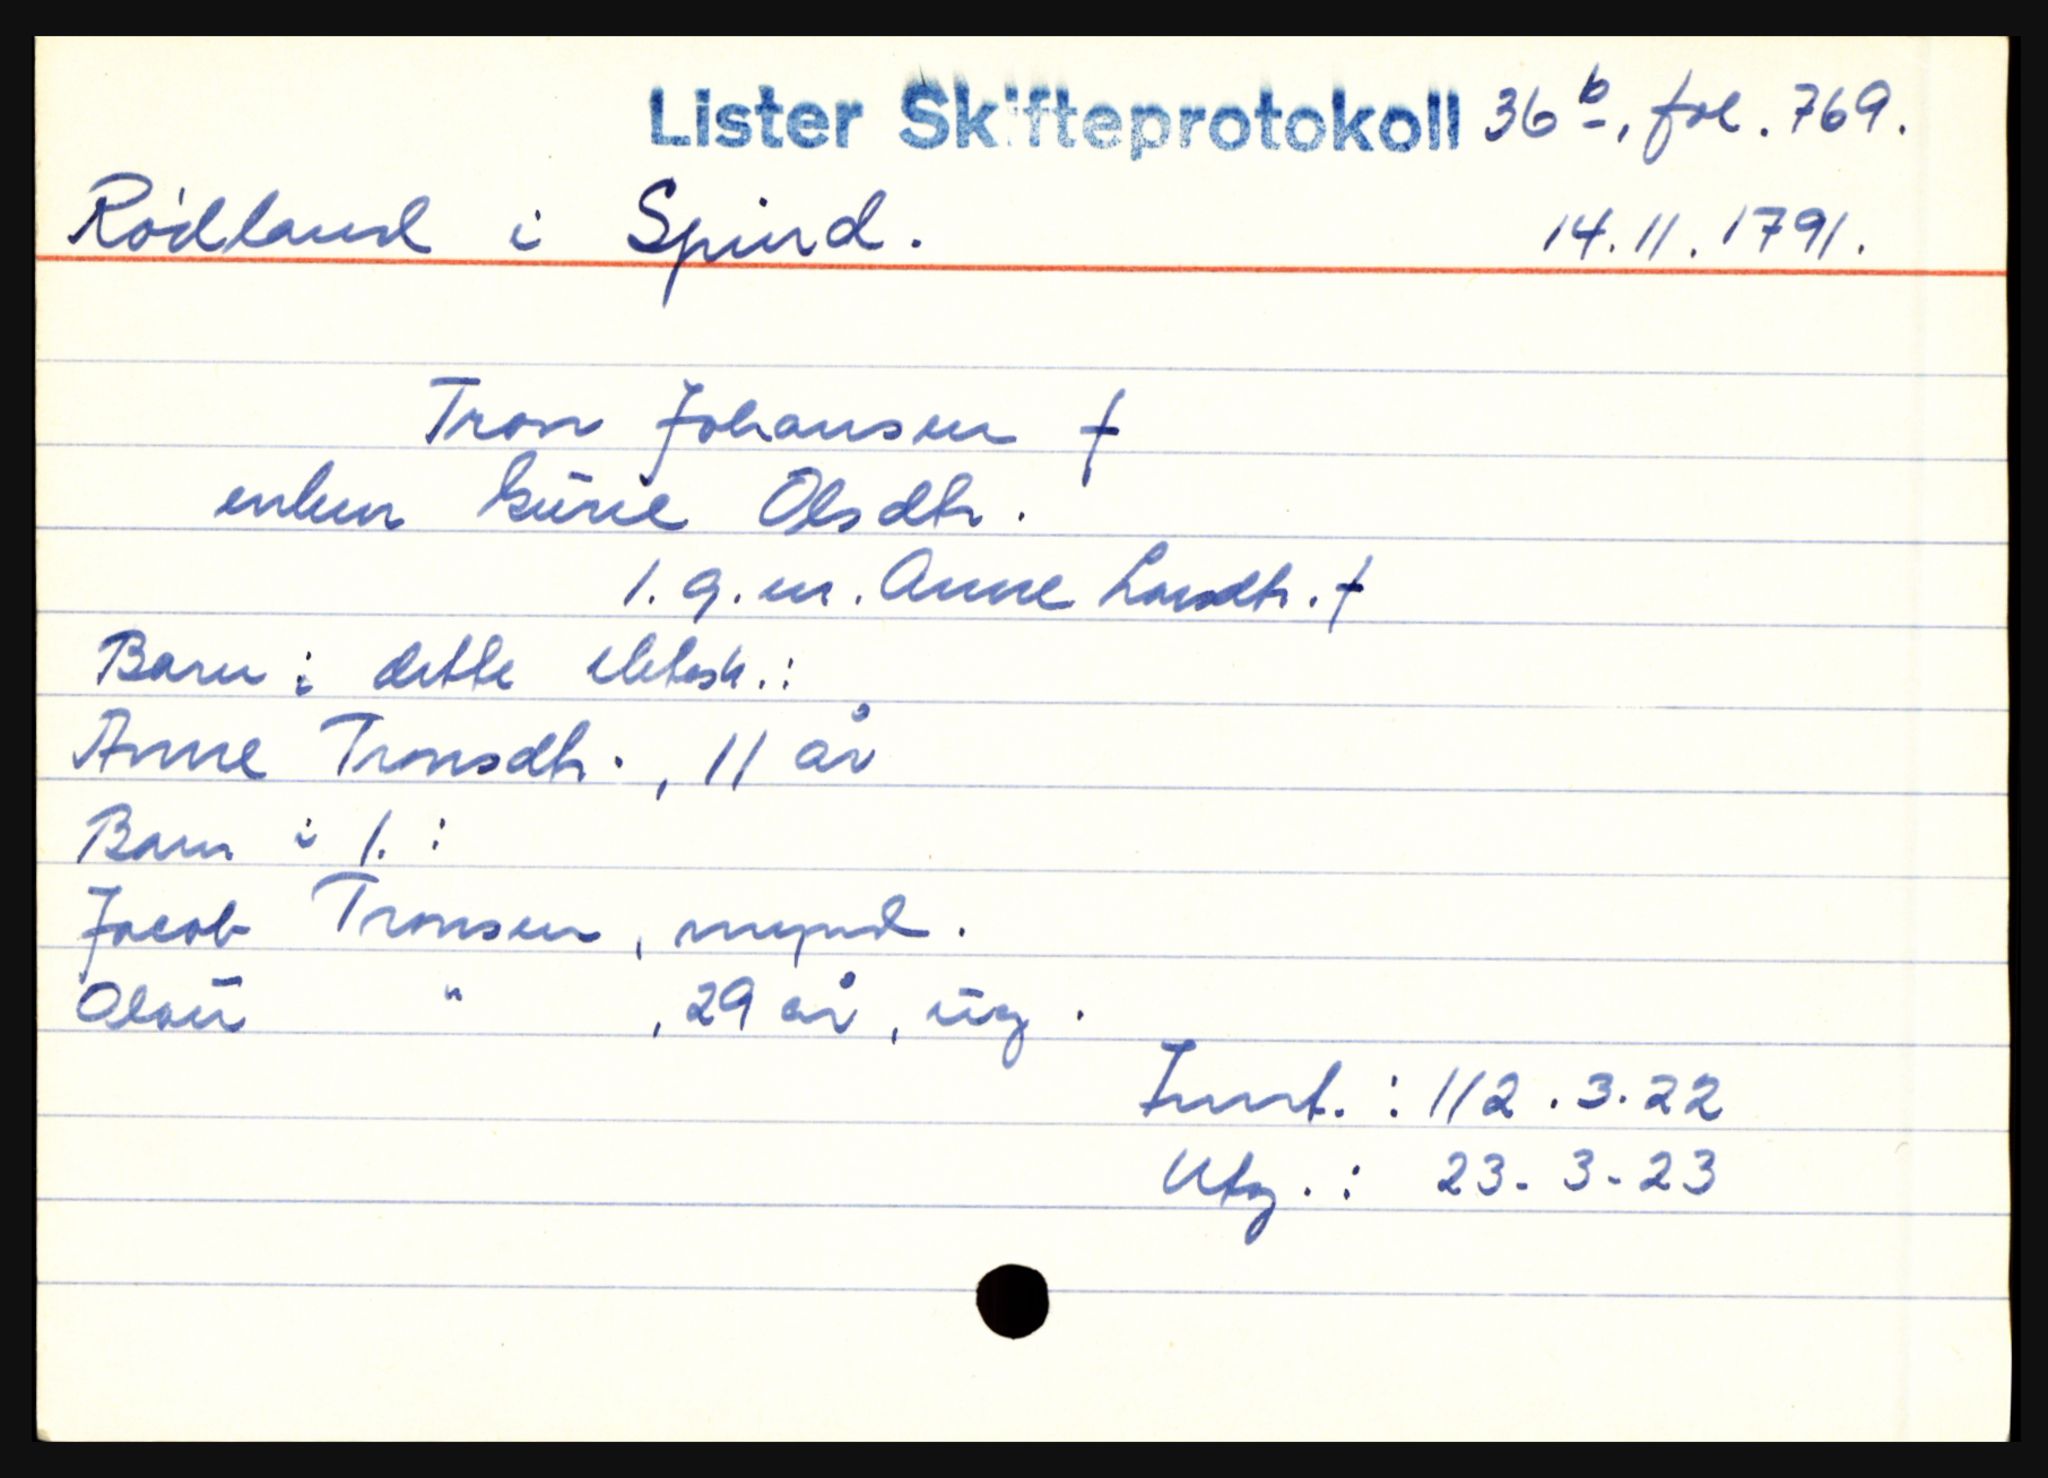 Lister Skifteprotokoll 36 b, fol. 769.
Rødland i Spind. 14.11.1791.
Tron Johansen †
enken Gurie Olsdtr.
1. g. m. Anne Larsdtr. †
Barn i dette ektesk.:
Anne Tronsdtr., 11 år
Barn i 1.:
Jacob Tronsen, mynd.
Olau " , 29 år, ug.
Innt.: 112.3.22
Utg.: 23-3-23